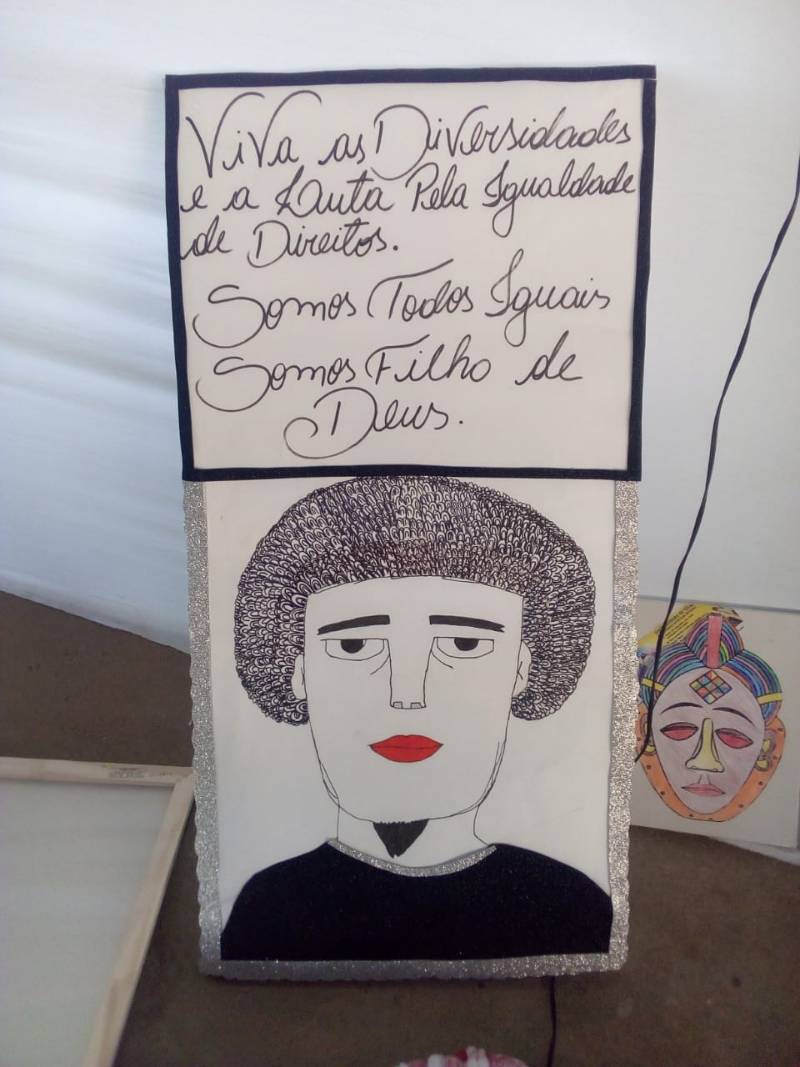 Viva as Diversidades
e a Luta Pela Igualdade
de Direitos.
Somos Todos Iguais
Somos Filho de
Deus.